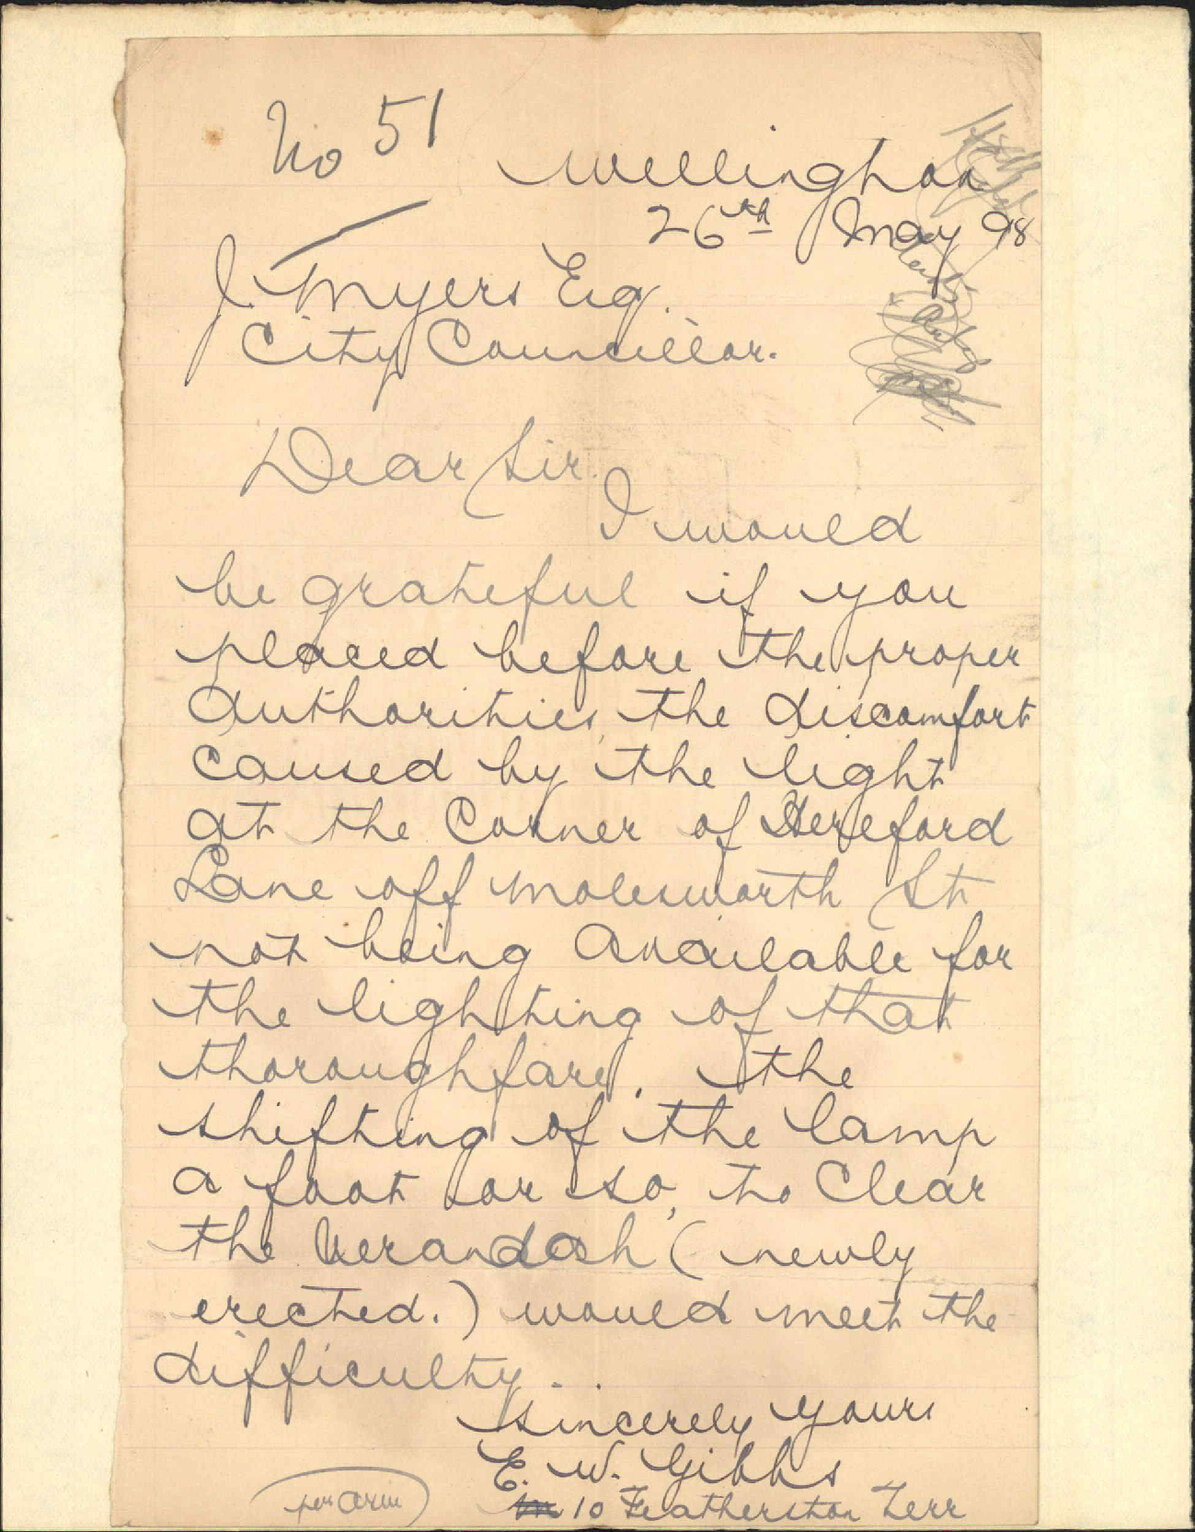 No 51
Wellington
26th May 98
J. Myers Esq.
City Councillor.
Dear Sir.
I would
be grateful if you
placed before the proper
authorities, the discomfort
caused by the light
at the Corner of Hereford
Lane off Molesworth St
not being available for
the lighting of that
thoroughfare. The
shifting of the lamp
a foot or so, to Clear
the Verandah (newly
erected.) would meet the
difficulty.
Sincerely yours
E. W. Gibbs
10 Featherston Terr